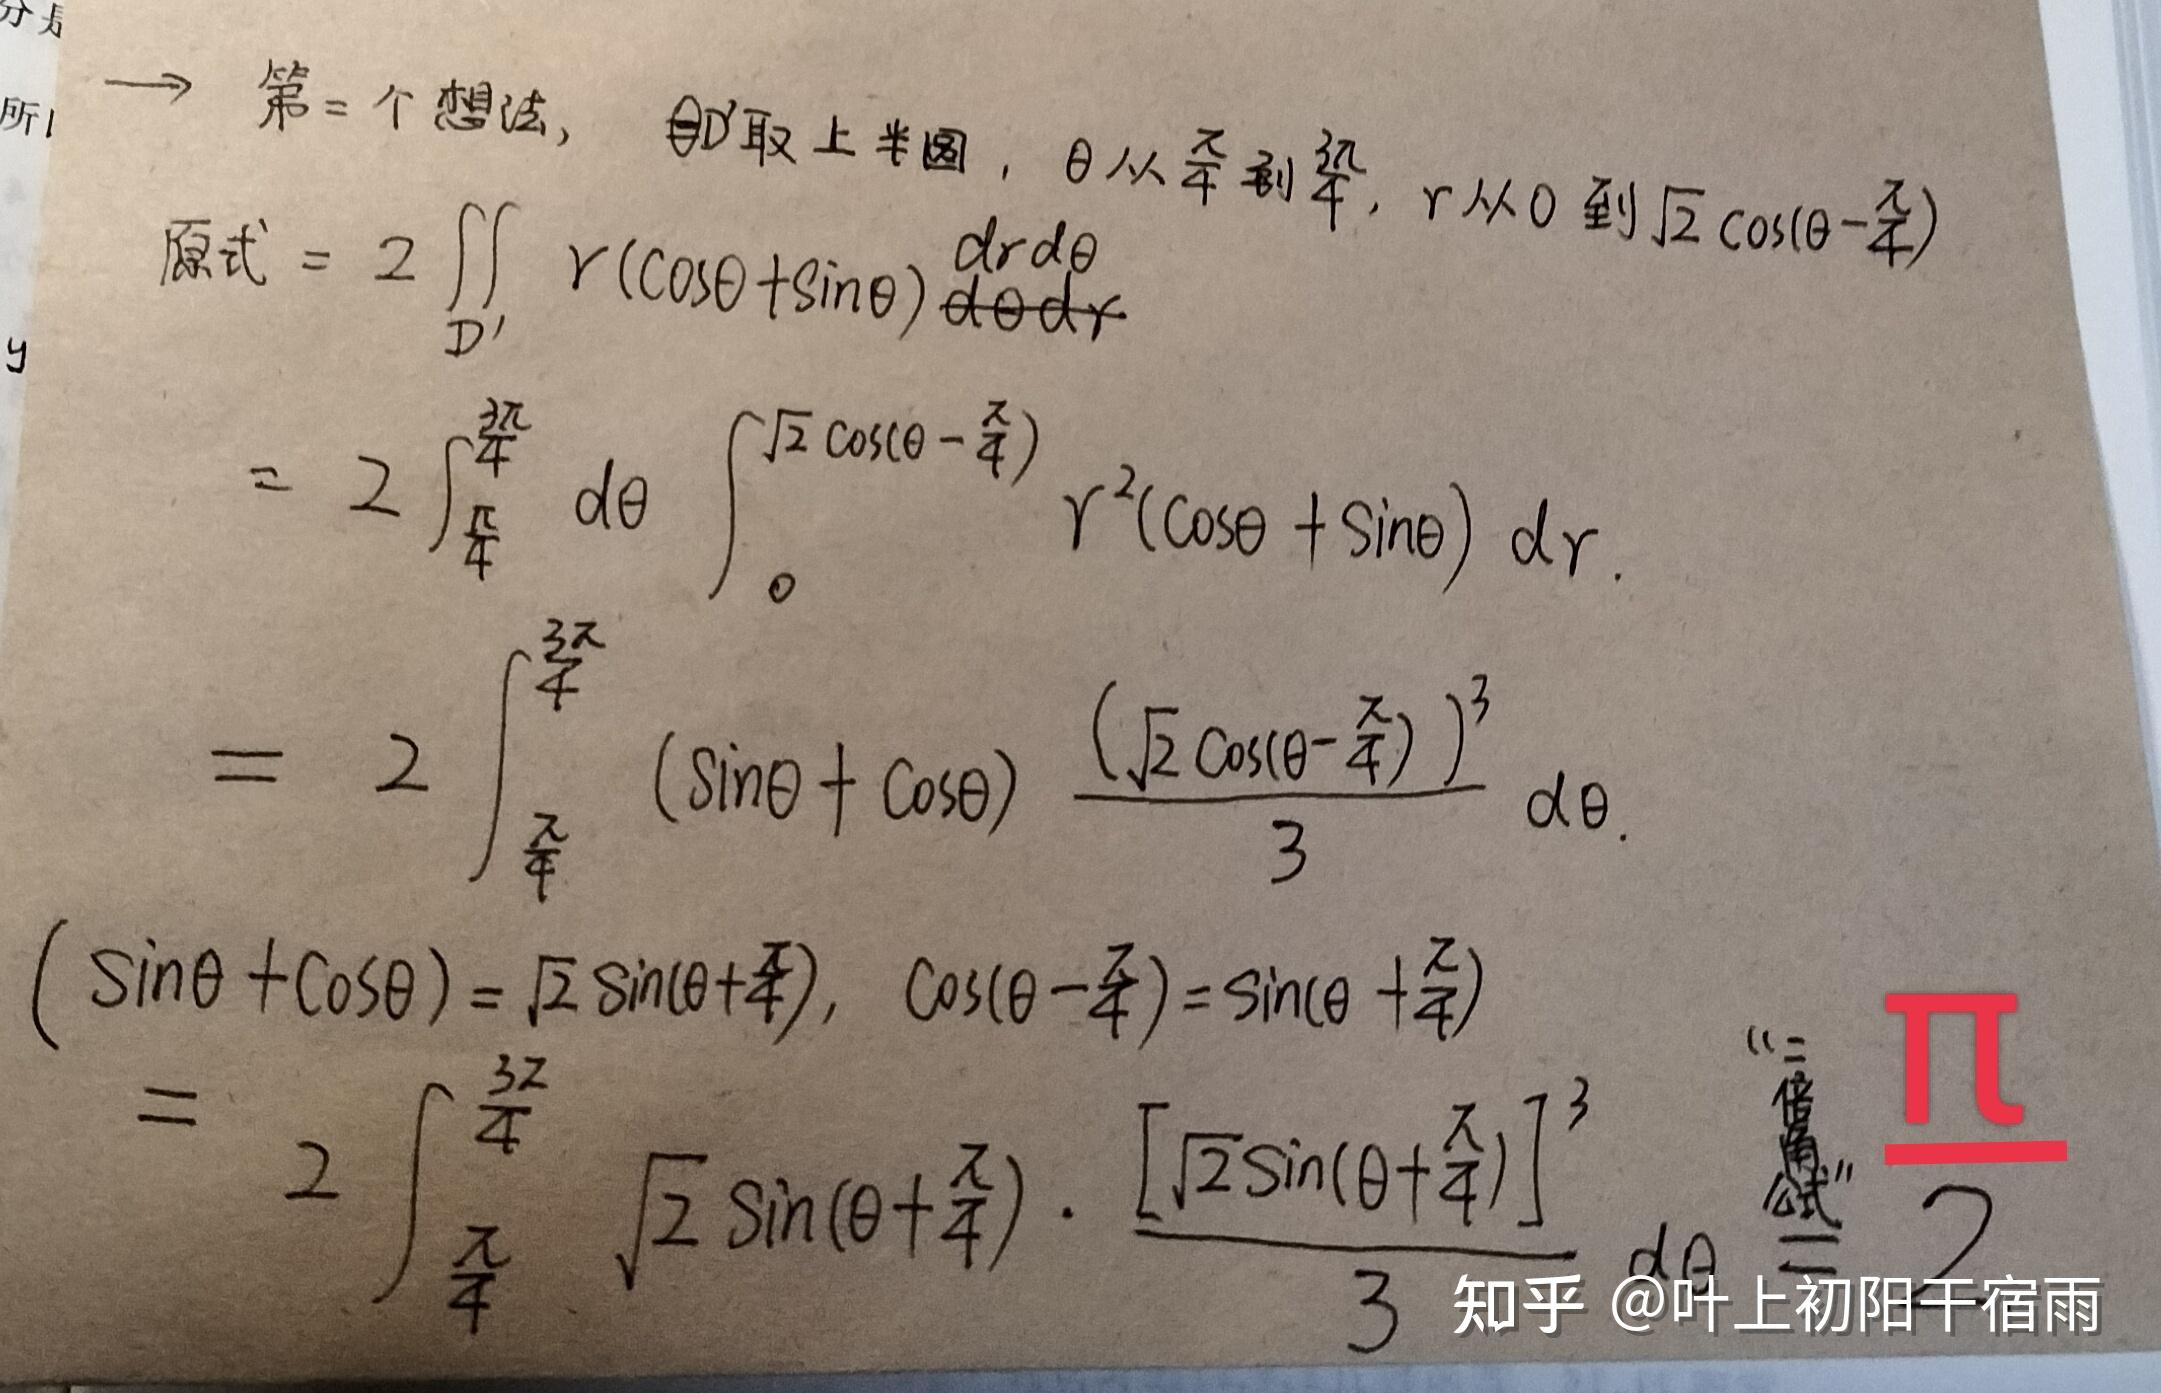 分是
所以
y
→ 第二个想法, D'取上半圆, θ从π/4到3π/4, r从0到√2cos(θ-π/4)
原式 = 2∬_D' r(cosθ+sinθ) drdθ
= 2∫_{π/4}^{3π/4} dθ ∫_0^{√2cos(θ-π/4)} r²(cosθ+sinθ) dr.
= 2∫_{π/4}^{3π/4} (sinθ+cosθ) (√2cos(θ-π/4))³/3 dθ.
(sinθ+cosθ)=√2sin(θ+π/4), cos(θ-π/4)=sin(θ+π/4)
= 2∫_{π/4}^{3π/4} √2sin(θ+π/4)·[√2sin(θ+π/4)]³/3 dθ "二倍角公式" = π/2
知乎 @叶上初阳干宿雨